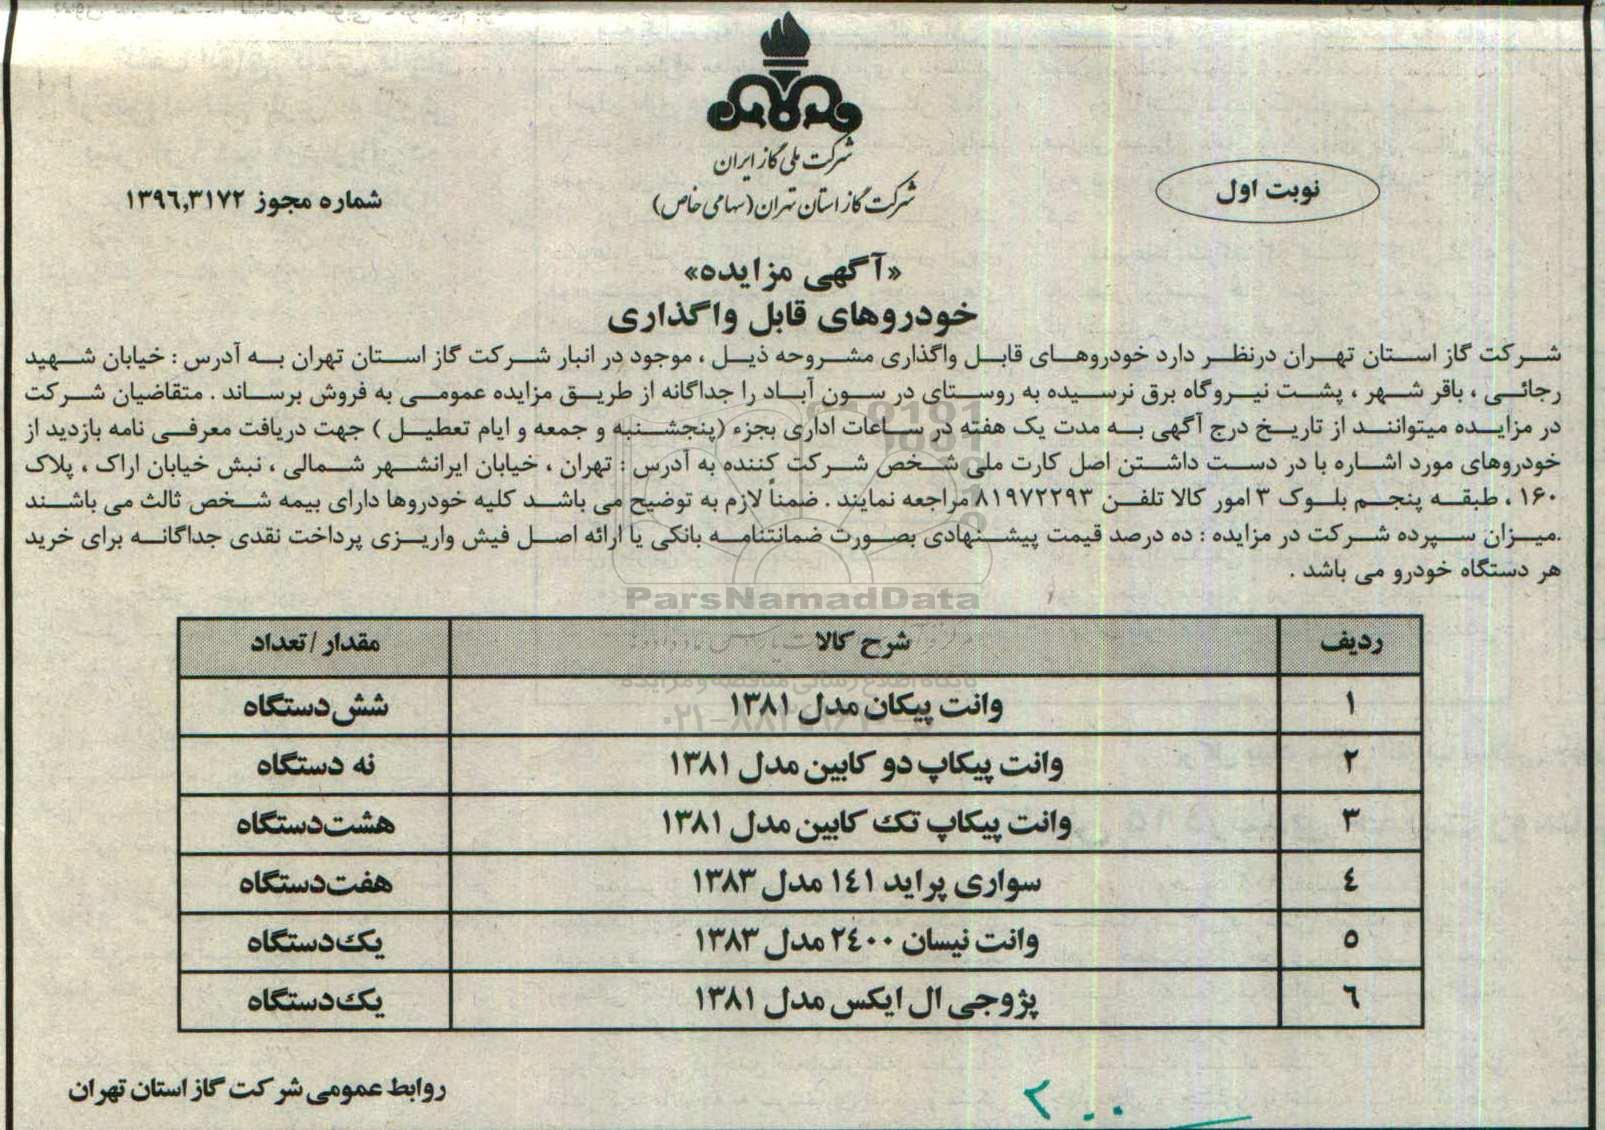 شرکت ملی گاز ایران
شرکت گاز استان تهران (سهامی خاص)
نوبت اول
شماره مجوز ۱۳۹۶,۳۱۷۲
«آگهی مزایده»
خودروهای قابل واگذاری
شرکت گاز استان تهران درنظر دارد خودروهای قابل واگذاری مشروحه ذیل ، موجود در انبار شرکت گاز استان تهران به آدرس : خیابان شهید
رجائی ، باقر شهر ، پشت نیروگاه برق نرسیده به روستای در سون آباد را جداگانه از طریق مزایده عمومی به فروش برساند . متقاضیان شرکت
در مزایده میتوانند از تاریخ درج آگهی به مدت یک هفته در ساعات اداری بجزء (پنجشنبه و جمعه و ایام تعطیل ) جهت دریافت معرفی نامه بازدید از
خودروهای مورد اشاره با در دست داشتن اصل کارت ملی شخص شرکت کننده به آدرس : تهران ، خیابان ایرانشهر شمالی ، نبش خیابان اراک ، پلاک
۱۶۰ ، طبقه پنجم بلوک ۳ امور کالا تلفن ۸۱۹۷۲۲۹۳ مراجعه نمایند . ضمناً لازم به توضیح می باشد کلیه خودروها دارای بیمه شخص ثالث می باشند
.میزان سپرده شرکت در مزایده : ده درصد قیمت پیشنهادی بصورت ضمانتنامه بانکی یا ارائه اصل فیش واریزی پرداخت نقدی جداگانه برای خرید
هر دستگاه خودرو می باشد .
ParsNamadData
پایگاه اطلاع رسانی مناقصه و مزایده
ردیف شرح کالا مقدار / تعداد
۱ وانت پیکان مدل ۱۳۸۱ شش دستگاه
۲ وانت پیکاپ دو کابین مدل ۱۳۸۱ نه دستگاه
۳ وانت پیکاپ تک کابین مدل ۱۳۸۱ هشت دستگاه
۴ سواری پراید ۱۴۱ مدل ۱۳۸۳ هفت دستگاه
۵ وانت نیسان ۲۴۰۰ مدل ۱۳۸۳ یک دستگاه
۶ پژو جی ال ایکس مدل ۱۳۸۱ یک دستگاه
روابط عمومی شرکت گاز استان تهران